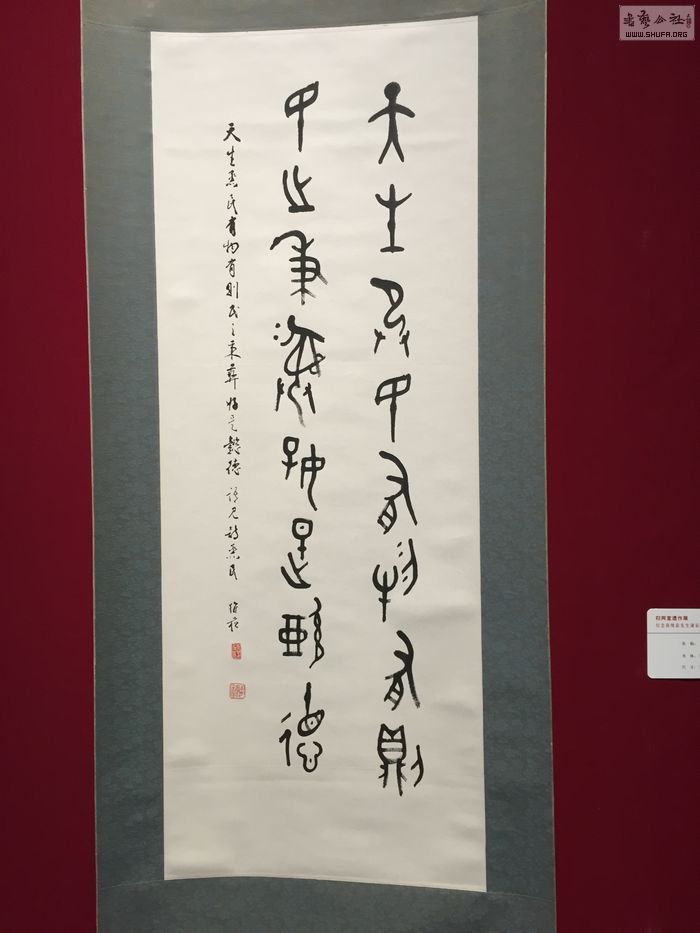 書藝公社
WWW.SHUFA.ORG
天生烝民有物有則
民之秉彝好是懿德
天生烝民有物有則民之秉彝好是懿德 語見詩烝民 維崧
遺作展